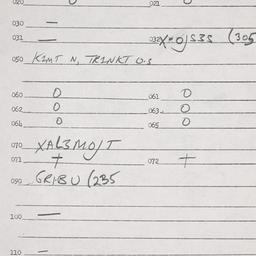 020 0 021 0
030 —
031 — 032 X=0JS3S (305
050 KIMT N, TRINKT O.S
060 0 061 0
062 0 063 0
064 0 065 0
070 XAL3MO/T
071 + 072 +
090 GRIBU (235
100 —
110 —